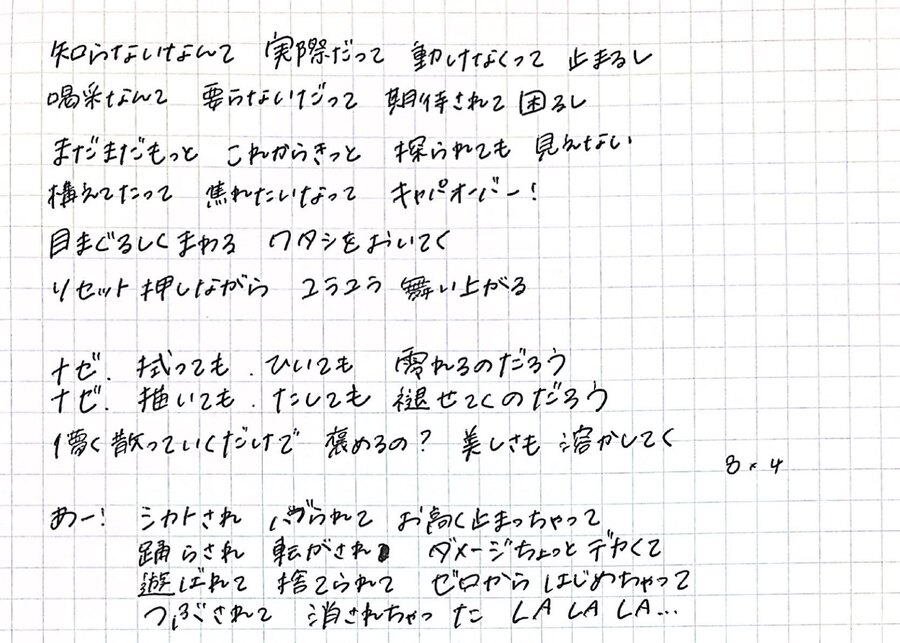 知らないなんて 実際だって 動けなくって 止まるし
喝采なんて 要らないだって 期待されて 困るし
まだまだもっと これからきっと 探られても 見えない
構えてたって 焦れたいなって キャパオーバー!
目まぐるしくまわる ワタシをおいてく
リセット押しながら ユラユラ 舞い上がる
ナゼ. 拭っても. ひいても 零れるのだろう
ナゼ. 描いても. たしても 褪せてくのだろう
儚く散っていくだけで 褒めるの? 美しさも溶かしてく
8×4
あー! シカトされ ハブられて お高く止まっちゃって
踊らされ 転がされ ダメージちょっとデカくて
遊ばれて 捨てられて ゼロからはじめちゃって
つぶされて 消されちゃった LA LA LA...